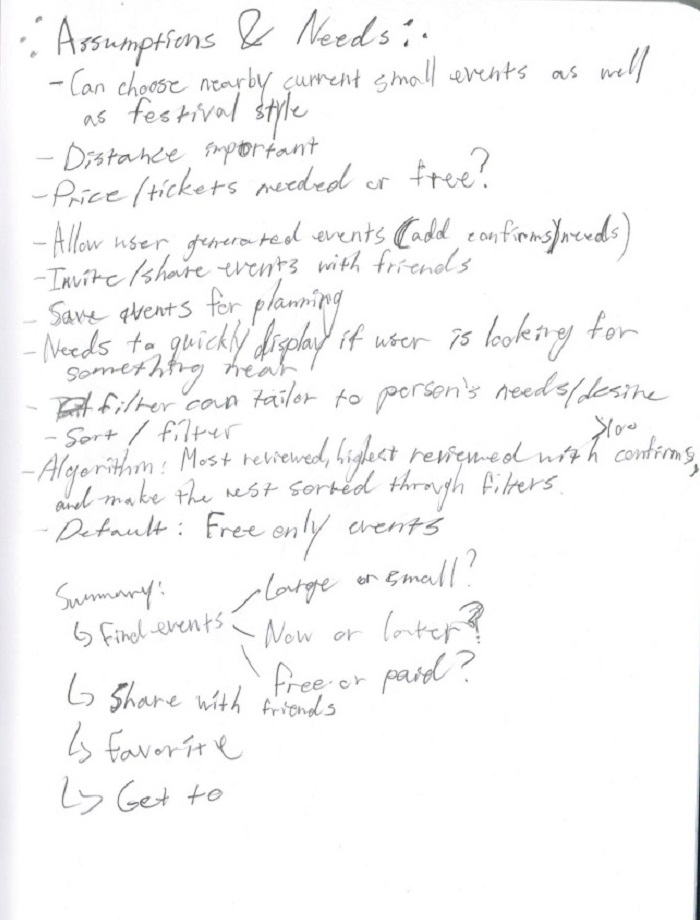 Assumptions & Needs:
- Can choose nearby current small events as well
as festival style
- Distance important
- Price/tickets needed or free?
- Allow user generated events (add confirms/needs)
- Invite/share events with friends
- Save events for planning
- Needs to quickly display if user is looking for
something near
- filter can tailor to person's needs/desire
- Sort / filter
>100
- Algorithm: Most reviewed, highest reviewed with confirms,
and make the rest sorted through filters.
- Default: Free only events
Summary:
↳ Find events
Large or small?
Now or later?
Free or paid?
↳ Share with friends
↳ Favorite
↳ Get to